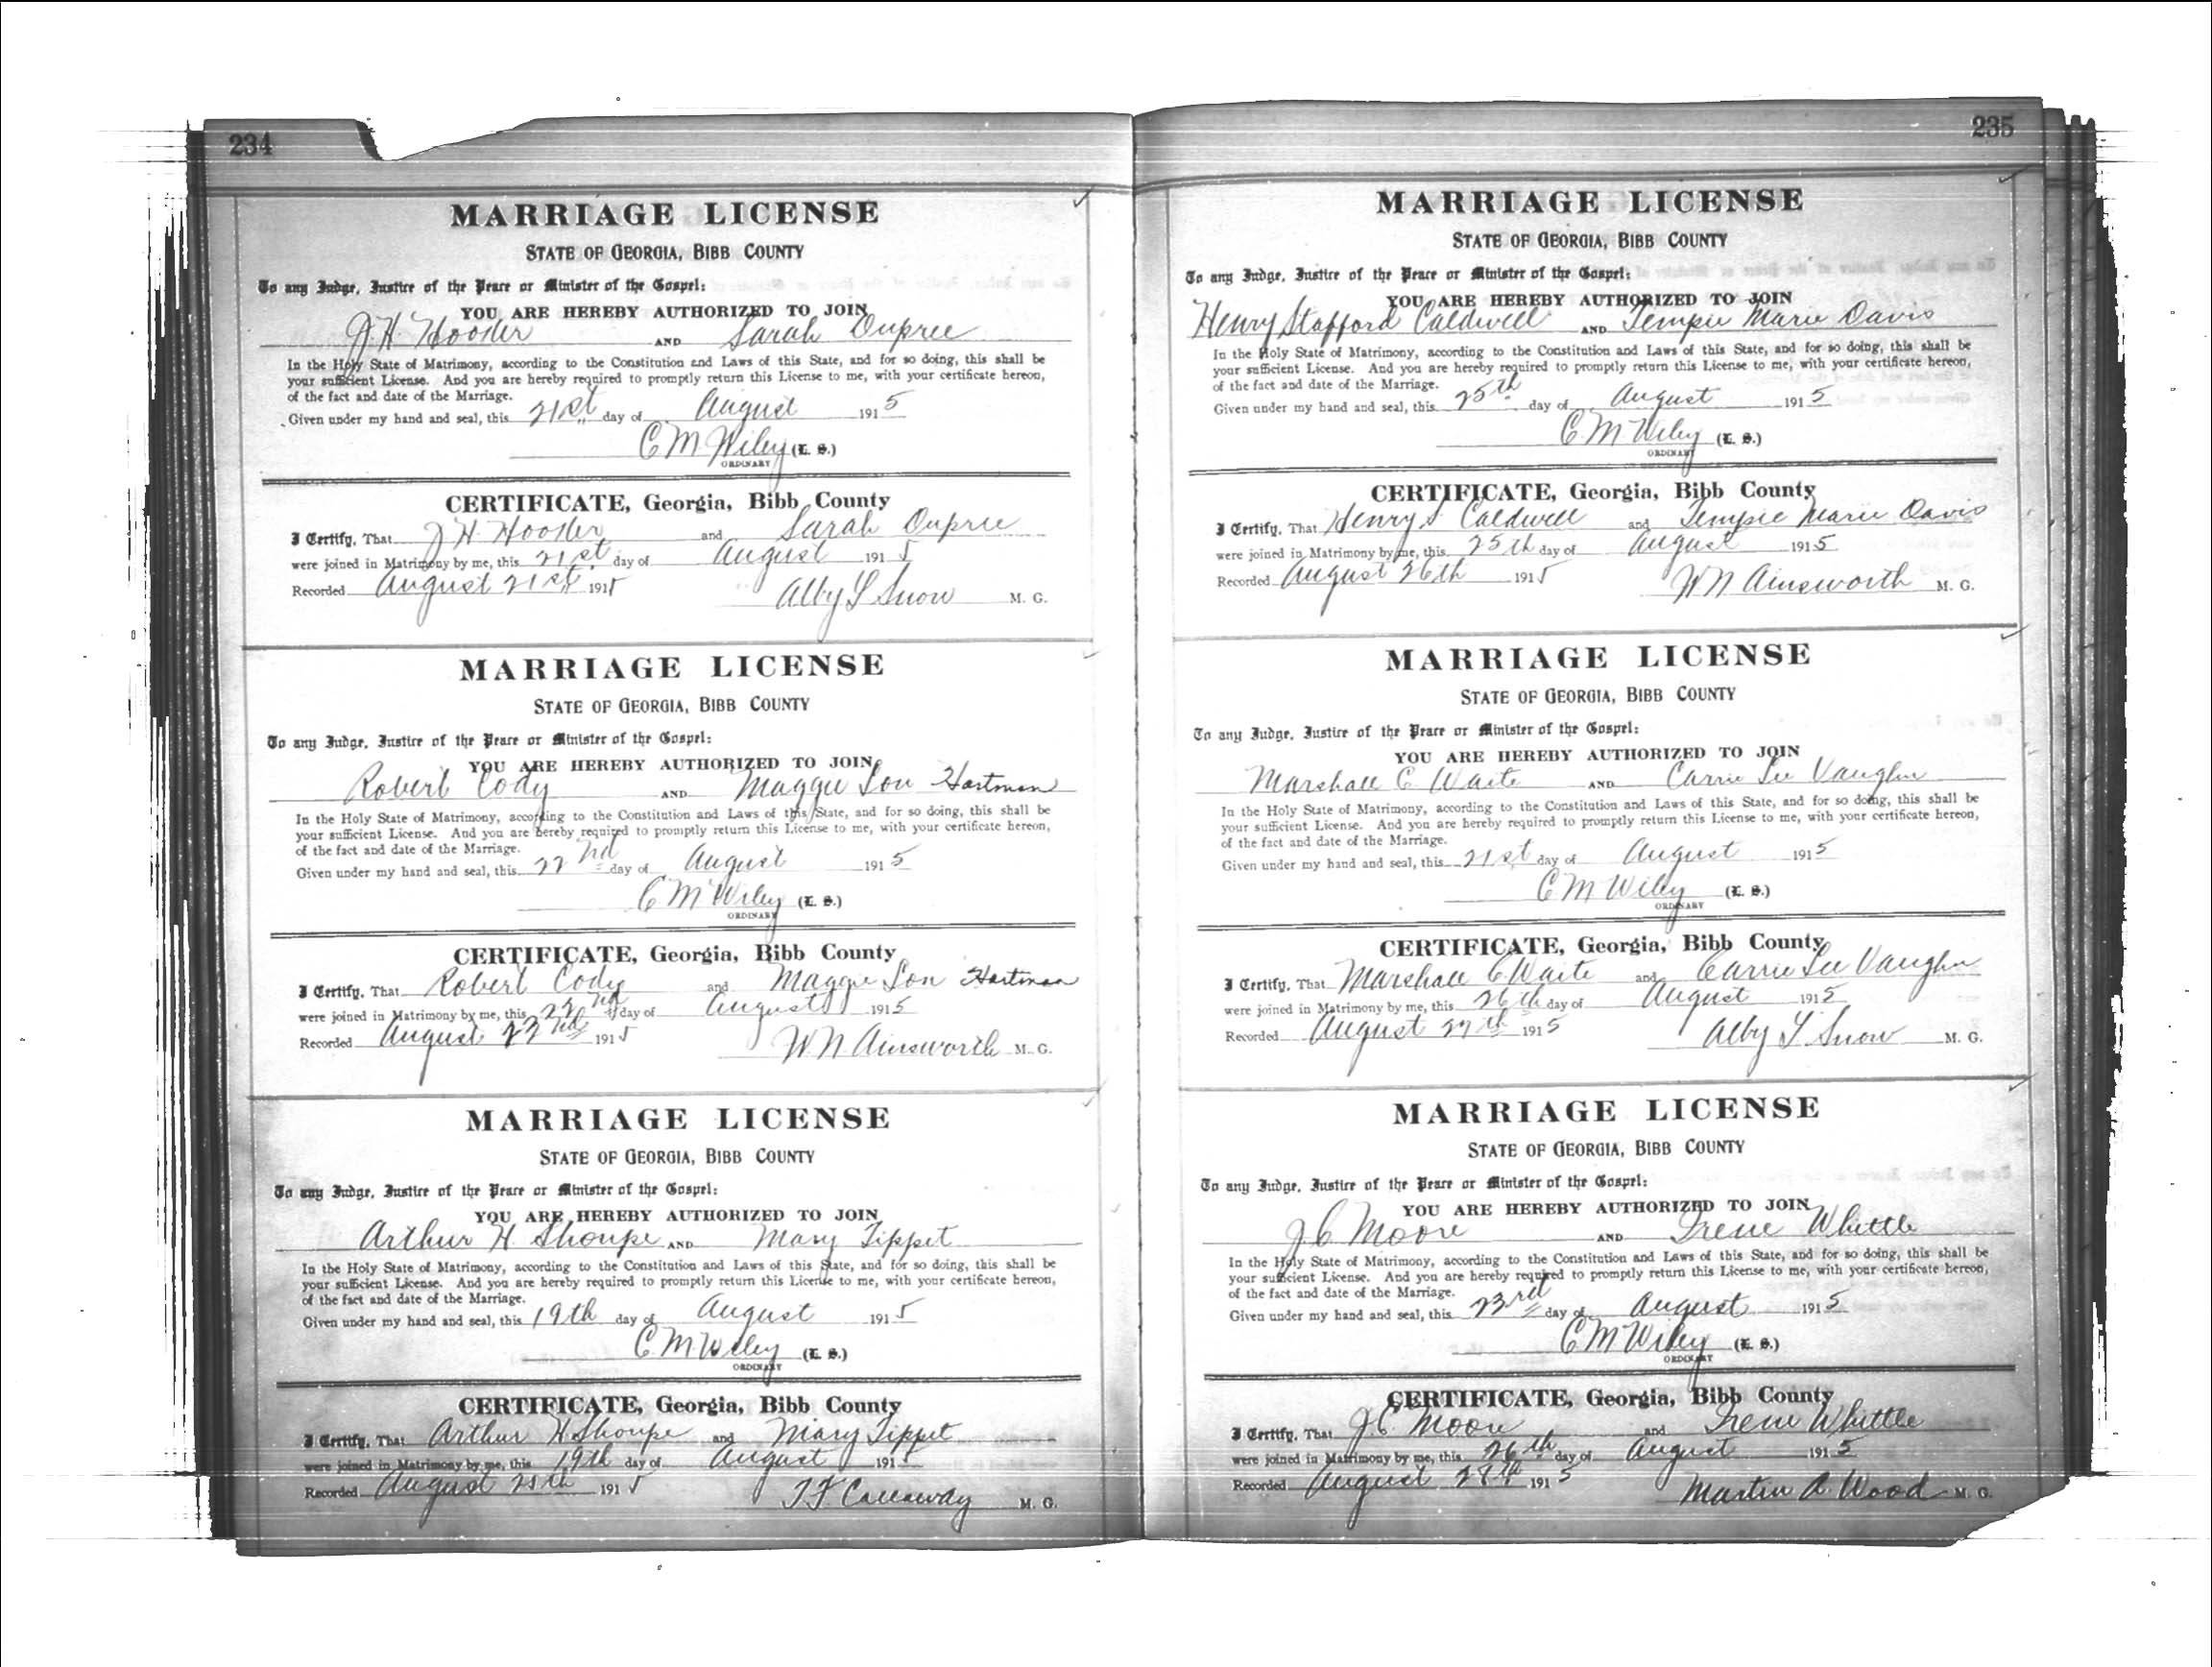 234
MARRIAGE LICENSE
STATE OF GEORGIA, BIBB COUNTY
To any Judge, Justice of the Peace or Minister of the Gospel:
YOU ARE HEREBY AUTHORIZED TO JOIN
J. H. AND Sarah Dupree
In the Holy State of Matrimony, according to the Constitution and Laws of this State, and for so doing, this shall be
your sufficient License. And you are hereby required to promptly return this License to me, with your certificate hereon,
of the fact and date of the Marriage.
Given under my hand and seal, this 21st day of August 1915
C M Wiley (L. S.)
ORDINARY
CERTIFICATE, Georgia, Bibb County
I Certify, That J H and Sarah Dupree
were joined in Matrimony by me, this 21st day of August 1915
Recorded August 21st 1915 Alby L Snow M. G.
MARRIAGE LICENSE
STATE OF GEORGIA, BIBB COUNTY
To any Judge, Justice of the Peace or Minister of the Gospel:
YOU ARE HEREBY AUTHORIZED TO JOIN
Robert Cody AND Maggie Lou Hartman
In the Holy State of Matrimony, according to the Constitution and Laws of this State, and for so doing, this shall be
your sufficient License. And you are hereby required to promptly return this License to me, with your certificate hereon,
of the fact and date of the Marriage.
Given under my hand and seal, this 22nd day of August 1915
C M Wiley (L. S.)
ORDINARY
CERTIFICATE, Georgia, Bibb County
I Certify, That Robert Cody and Maggie Lou Hartman
were joined in Matrimony by me, this 22nd day of August 1915
Recorded August 22nd 1915 W N Ainsworth M. G.
MARRIAGE LICENSE
STATE OF GEORGIA, BIBB COUNTY
To any Judge, Justice of the Peace or Minister of the Gospel:
YOU ARE HEREBY AUTHORIZED TO JOIN
Arthur H Shoupe AND Mary Tippet
In the Holy State of Matrimony, according to the Constitution and Laws of this State, and for so doing, this shall be
your sufficient License. And you are hereby required to promptly return this License to me, with your certificate hereon,
of the fact and date of the Marriage.
Given under my hand and seal, this 19th day of August 1915
C M Wiley (L. S.)
ORDINARY
CERTIFICATE, Georgia, Bibb County
I Certify, That Arthur H Shoupe and Mary Tippet
were joined in Matrimony by me, this 19th day of August 1915
Recorded August 25th 1915 T F Callaway M. G.
235
MARRIAGE LICENSE
STATE OF GEORGIA, BIBB COUNTY
To any Judge, Justice of the Peace or Minister of the Gospel:
YOU ARE HEREBY AUTHORIZED TO JOIN
Henry Stafford Caldwell AND Tempie Marie Davis
In the Holy State of Matrimony, according to the Constitution and Laws of this State, and for so doing, this shall be
your sufficient License. And you are hereby required to promptly return this License to me, with your certificate hereon,
of the fact and date of the Marriage.
Given under my hand and seal, this 25th day of August 1915
C M Wiley (L. S.)
ORDINARY
CERTIFICATE, Georgia, Bibb County
I Certify, That Henry S Caldwell and Tempie Marie Davis
were joined in Matrimony by me, this 25th day of August 1915
Recorded August 26th 1915 W N Ainsworth M. G.
MARRIAGE LICENSE
STATE OF GEORGIA, BIBB COUNTY
To any Judge, Justice of the Peace or Minister of the Gospel:
YOU ARE HEREBY AUTHORIZED TO JOIN
Marshall C Waite AND Carrie Lee Vaughn
In the Holy State of Matrimony, according to the Constitution and Laws of this State, and for so doing, this shall be
your sufficient License. And you are hereby required to promptly return this License to me, with your certificate hereon,
of the fact and date of the Marriage.
Given under my hand and seal, this 21st day of August 1915
C M Wiley (L. S.)
ORDINARY
CERTIFICATE, Georgia, Bibb County
I Certify, That Marshall C Waite and Carrie Lee Vaughn
were joined in Matrimony by me, this 26th day of August 1915
Recorded August 27th 1915 Alby L Snow M. G.
MARRIAGE LICENSE
STATE OF GEORGIA, BIBB COUNTY
To any Judge, Justice of the Peace or Minister of the Gospel:
YOU ARE HEREBY AUTHORIZED TO JOIN
J. C. Moore AND Irene Whittle
In the Holy State of Matrimony, according to the Constitution and Laws of this State, and for so doing, this shall be
your sufficient License. And you are hereby required to promptly return this License to me, with your certificate hereon,
of the fact and date of the Marriage.
Given under my hand and seal, this 23rd day of August 1915
C M Wiley (L. S.)
ORDINARY
CERTIFICATE, Georgia, Bibb County
I Certify, That J. C. Moore and Irene Whittle
were joined in Matrimony by me, this 26th day of August 1915
Recorded August 28th 1915 Martin A. Wood M. G.